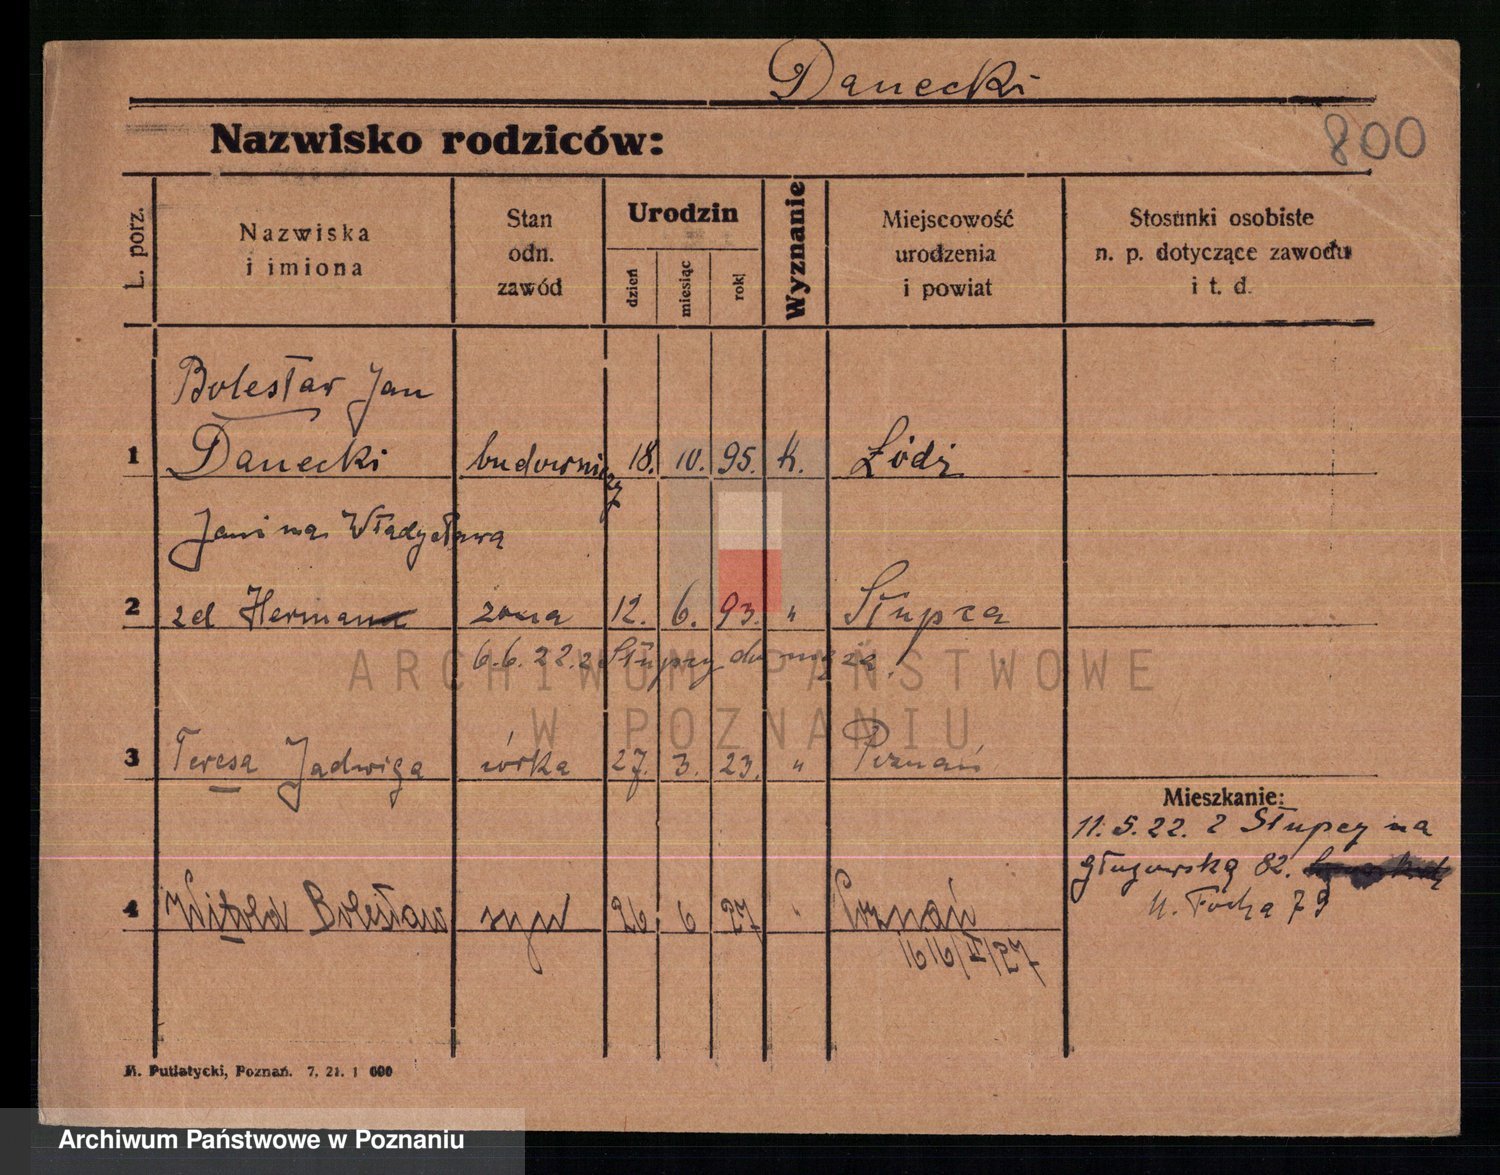 Danecki
Nazwisko rodziców:
800
L. porz.
Nazwiska
i imiona
Stan
odn.
zawód
Urodzin
dzień
miesiąc
rok
Wyznanie
Miejscowość
urodzenia
i powiat
Stosunki osobiste
n. p. dotyczące zawodu
i t. d.
Bolesław Jan
1 Danecki budowniczy 18. 10. 95. k. Łódź
Janina Władysława
2 zd Herman żona 12. 6. 93. " Słupca
6.6.22. z Słupcy do męża.
3 Teresa Jadwiga córka 27. 3. 23. " Poznań
Mieszkanie:
11.5.22. z Słupcy na
Głogowską 82.
M. Focha 79
4 Witold Bolesław syn 26 6 27 " Poznań
M. Putiatycki, Poznań. 7. 21. 1 000
ARCHIWUM PAŃSTWOWE
W POZNANIU
Archiwum Państwowe w Poznaniu